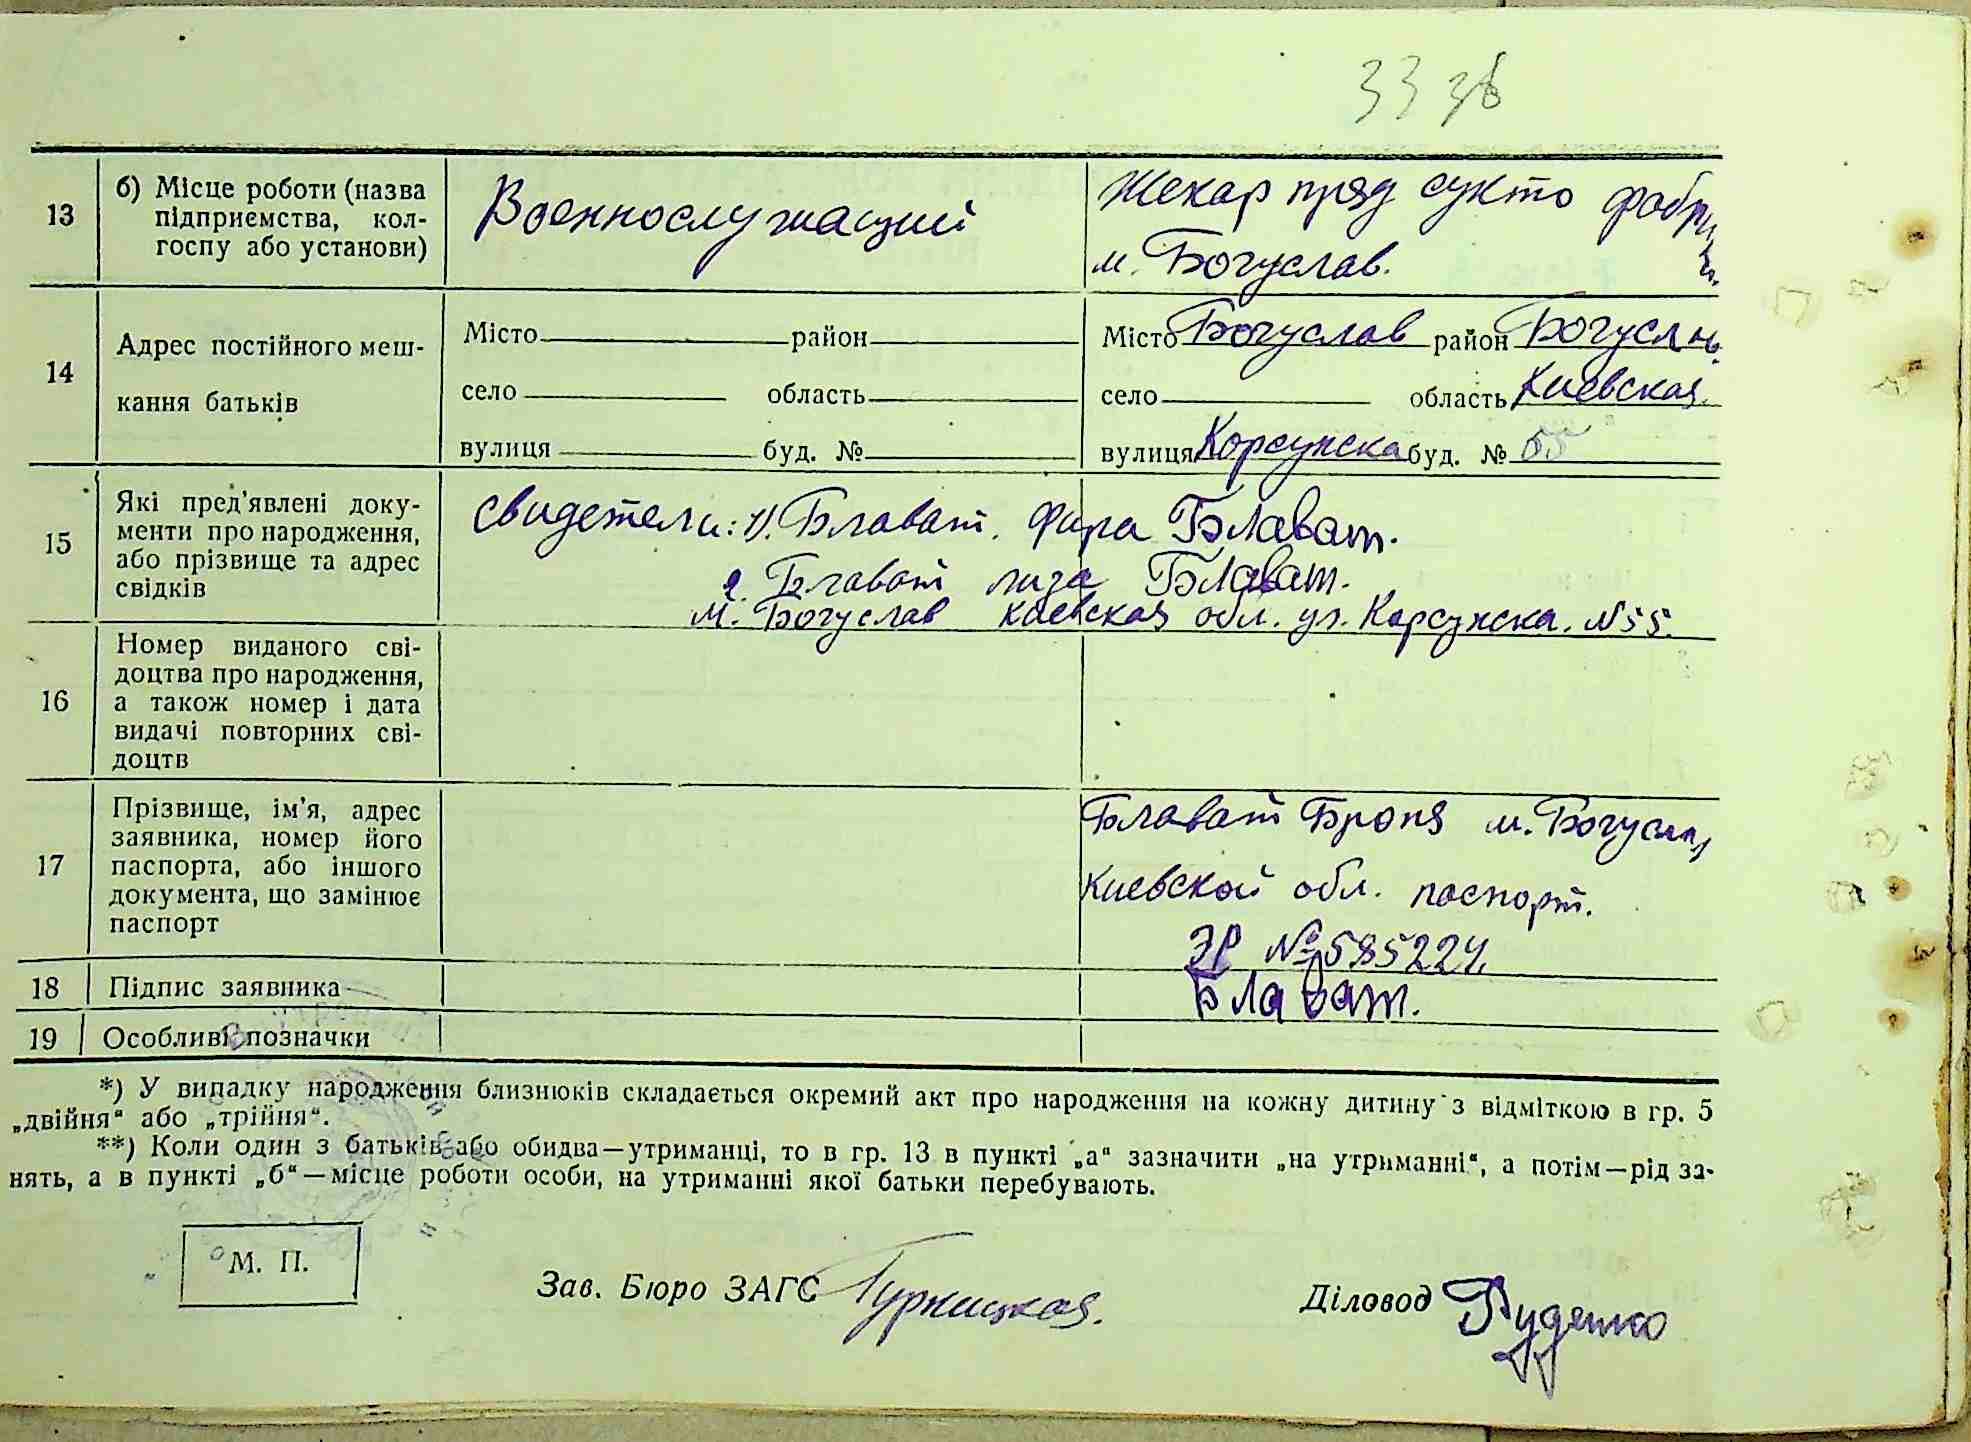 33 зв
13
б) Місце роботи (назва
підприємства, кол-
госпу або установи)
Военнослужащий
пряд сукно фабрики
м. Богуслав.
14
Адрес постійного меш-
кання батьків
Місто район
село область
вулиця буд. №
Місто Богуслав район Богуслав.
село область Киевская.
вулиця Корсунска буд. № 55
15
Які пред'явлені доку-
менти про народження,
або прізвище та адрес
свідків
Свидетели: 1). Блават. Фира Блават.
2. Блават лиза Блават.
м. Богуслав Киевская обл. ул. Корсунска. № 55.
16
Номер виданого сві-
доцтва про народження,
а також номер і дата
видачі повторних сві-
доцтв
17
Прізвище, ім'я, адрес
заявника, номер його
паспорта, або іншого
документа, що замінює
паспорт
Блават Броня м. Богуслав
Киевской обл. паспорт.
ЭР № 585224.
18
Підпис заявника
Блават.
19
Особливі позначки
*) У випадку народження близнюків складається окремий акт про народження на кожну дитину з відміткою в гр. 5
„двійня“ або „трійня“.
**) Коли один з батьків або обидва—утриманці, то в гр. 13 в пункті „а“ зазначити „на утриманні“, а потім—рід за-
нять, а в пункті „б“—місце роботи особи, на утриманні якої батьки перебувають.
М. П.
Зав. Бюро ЗАГС Гурницкая.
Діловод Руденко